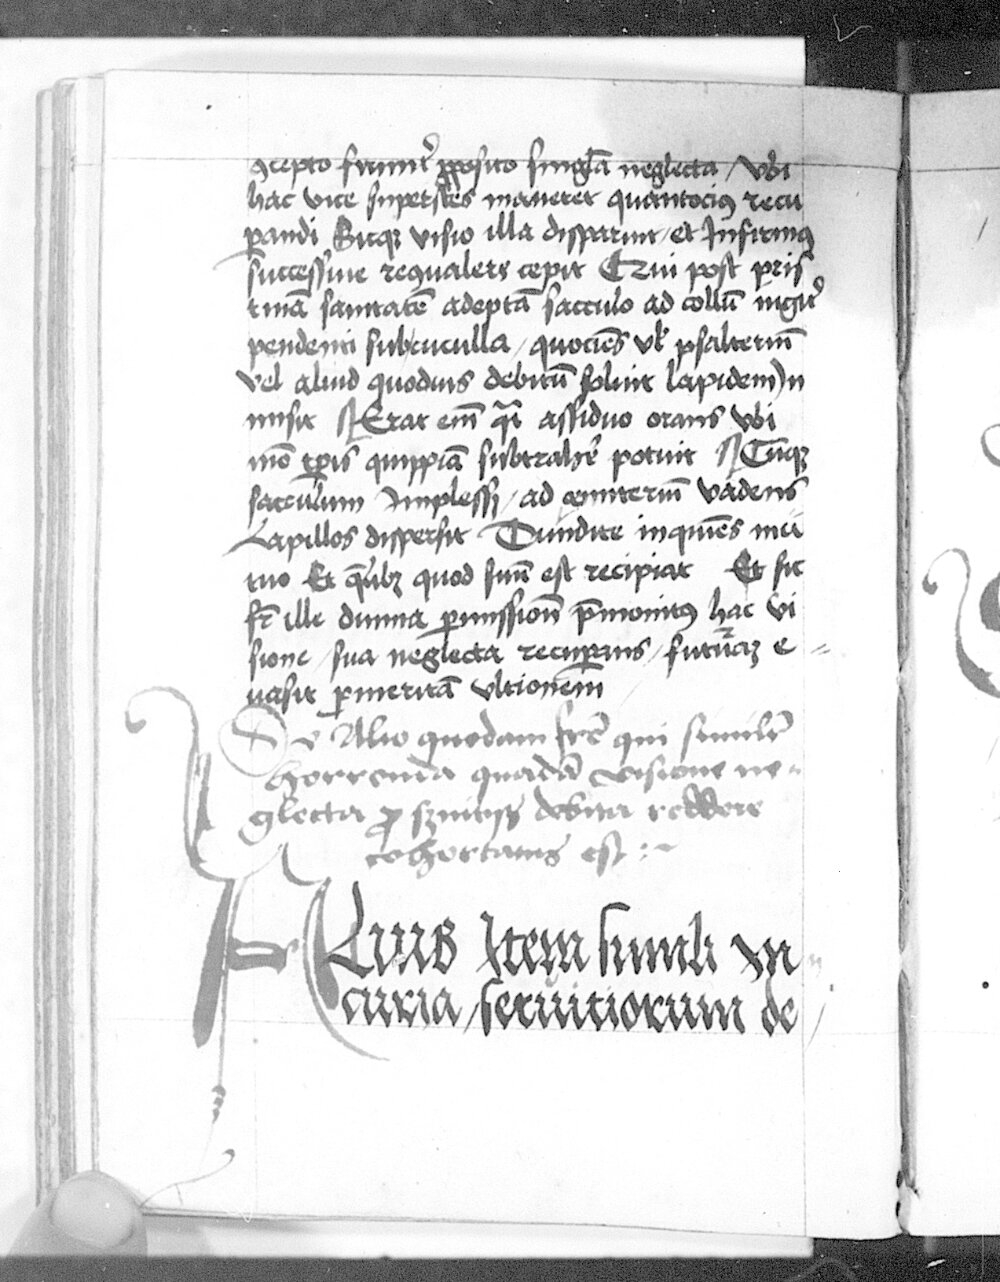 ɔcepto firmit᷒ ꝓposito singl̃a neglecta / Vbi
hac vice superstes maneret quantociꝰ recu
ꝑandi Sicqꝫ visio illa disparuit / et Infirmꝰ
successiue reconualescere cepit Qui post pris
tinā sanitatē adeptā sacculo ad collū iugit᷒
pendenti sub cuculla / quociēs vł psalteriū
vel aliud quoduis debitū soluit lapidem In
misit Erat em̄ assiduo orans Vbi
mō tꝑis quippiā subtrahere potuit Cūqꝫ
sacculum Implesset / ad cimiteriū vadens
Lapillos dispersit Diuidite inquiēs mu
tuo Et quilibꝫ quod suū est recipiat Et sic
fr̄ ille diuina ꝑmissione p̄monitꝰ hac vi
sione / sua neglecta recuꝑans / futurā e
uasit ꝑmeritā vltionem
De Alio quodam fr̄e qui similit᷒
horrenda quadā visione ne-
glecta ꝓ debita reddere
cohortatus est :~
ALius Item simili in
curia / seruitiorum de